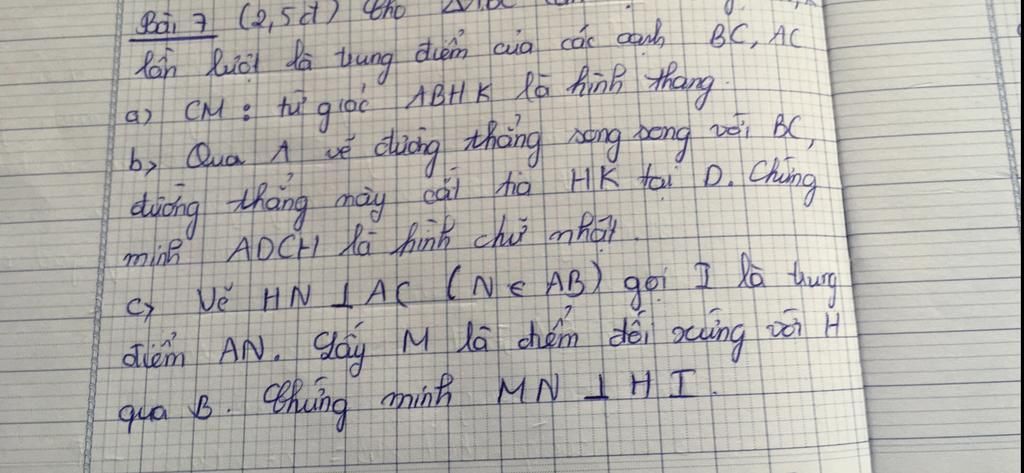 Bài 7 (2,5đ) Cho
lần lượt là trung điểm của các cạnh BC, AC
a) CM : tứ giác ABHK là hình thang.
b, Qua A vẽ đường thẳng song song với BC,
đường thẳng này cắt tia HK tại D. Chứng
minh ADCH là hình chữ nhật.
c, Vẽ HN ⊥ AC (N ∈ AB) gọi I là trung
điểm AN. Lấy M là điểm đối xứng với H
qua B. Chứng minh MN ⊥ HI.